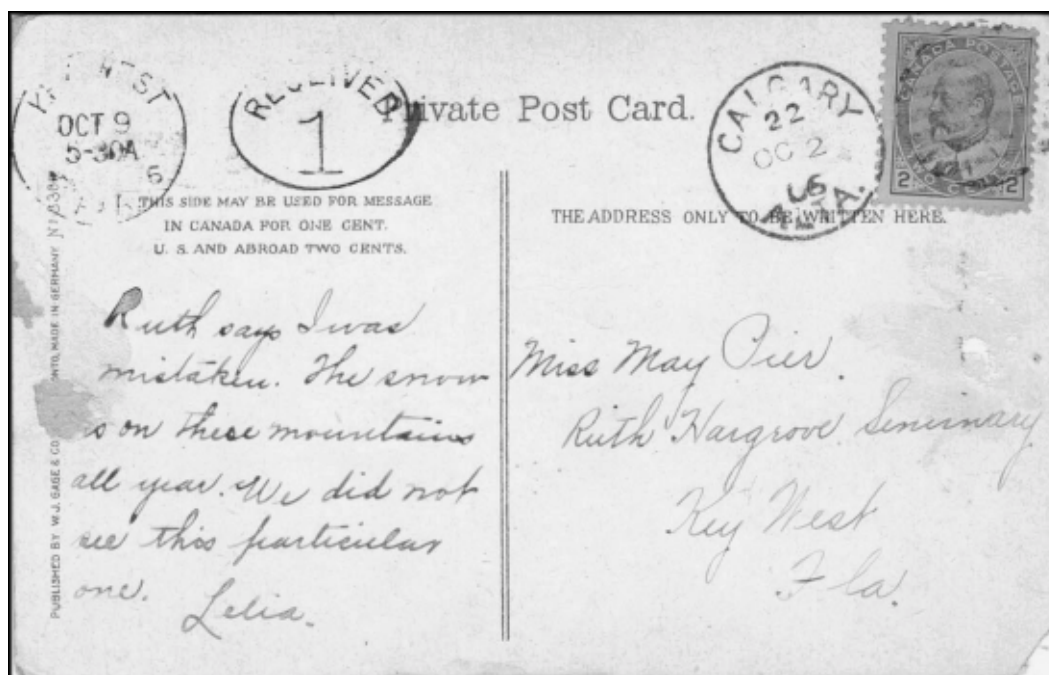 WEST
OCT 9
5-30A
6
RECEIVED
1
Private Post Card.
CALGARY
22
OC 2
06
ALTA.
CANADA POSTAGE
2 CENTS 2
THIS SIDE MAY BE USED FOR MESSAGE
IN CANADA FOR ONE CENT.
U. S. AND ABROAD TWO CENTS.
THE ADDRESS ONLY TO BE WRITTEN HERE.
PUBLISHED BY W. J. GAGE & CO ONTO, MADE IN GERMANY
Ruth says I was
mistaken. The snow
is on these mountains
all year. We did not
see this particular
one.
Lelia.
Miss May Pier.
Ruth Hargrove Seminary
Key West
Fla.